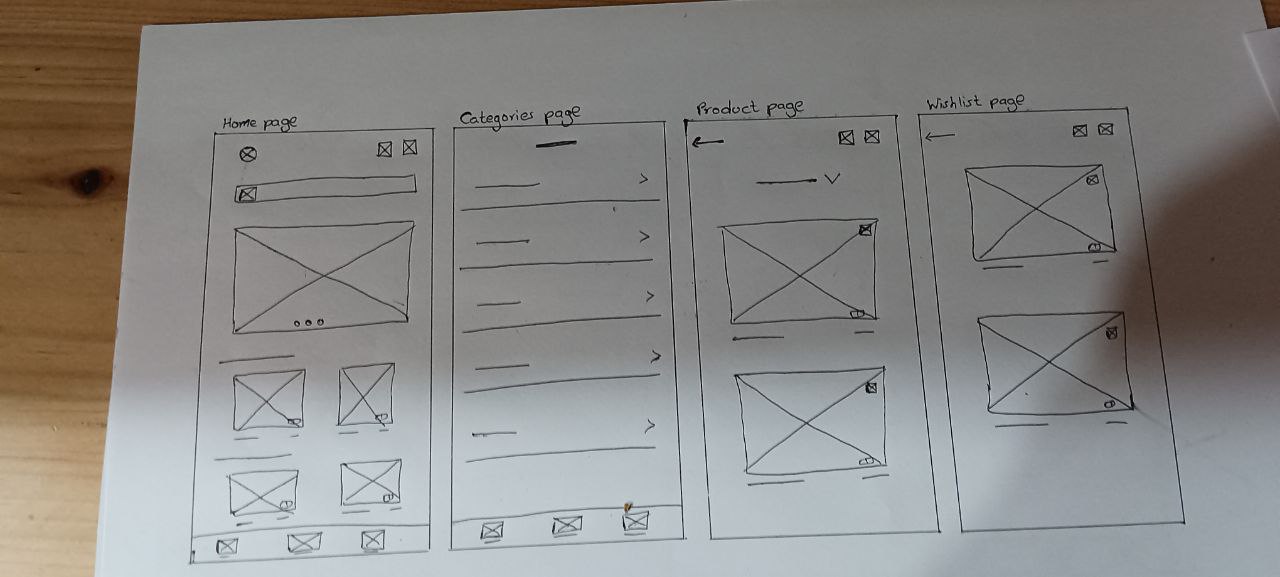 Home page
Categories page
Product page
Wishlist page